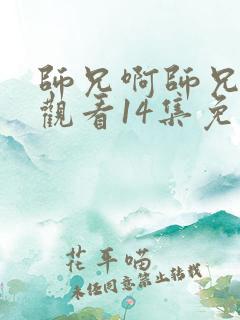 師兄啊師兄
觀看14集免
花平喵
未經同意禁止转載